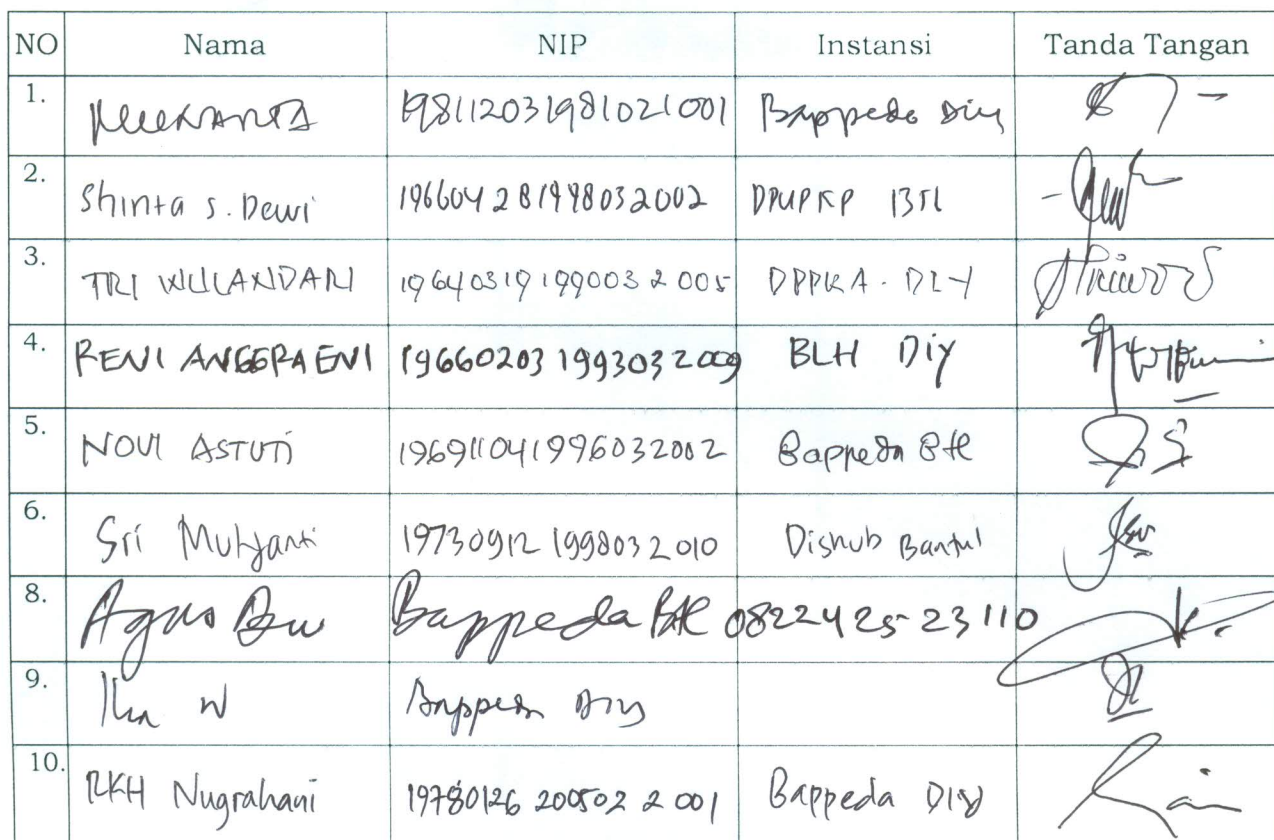 NO Nama NIP Instansi Tanda Tangan
1. Bappeda DIY
2. Shinta S. Dewi 19660428 1998032002 DPUPKP BTL
3. TRI WULANDARI 19640319 199003 2 005 DPPKA - DIY
4. RENI ANGGRAENI 19660203 199303 2 009 BLH DIY
5. NOVI ASTUTI 196911041996032002 Bappeda Btl
6. Sri Mulyanti 19730912 199803 2 010 Dishub Bantul
8. Agus Bappeda Btl 0822425-23110
9. Ika W Bappeda DIY
10. RKH Nugrahani 19780126 200502 2 001 Bappeda DIY